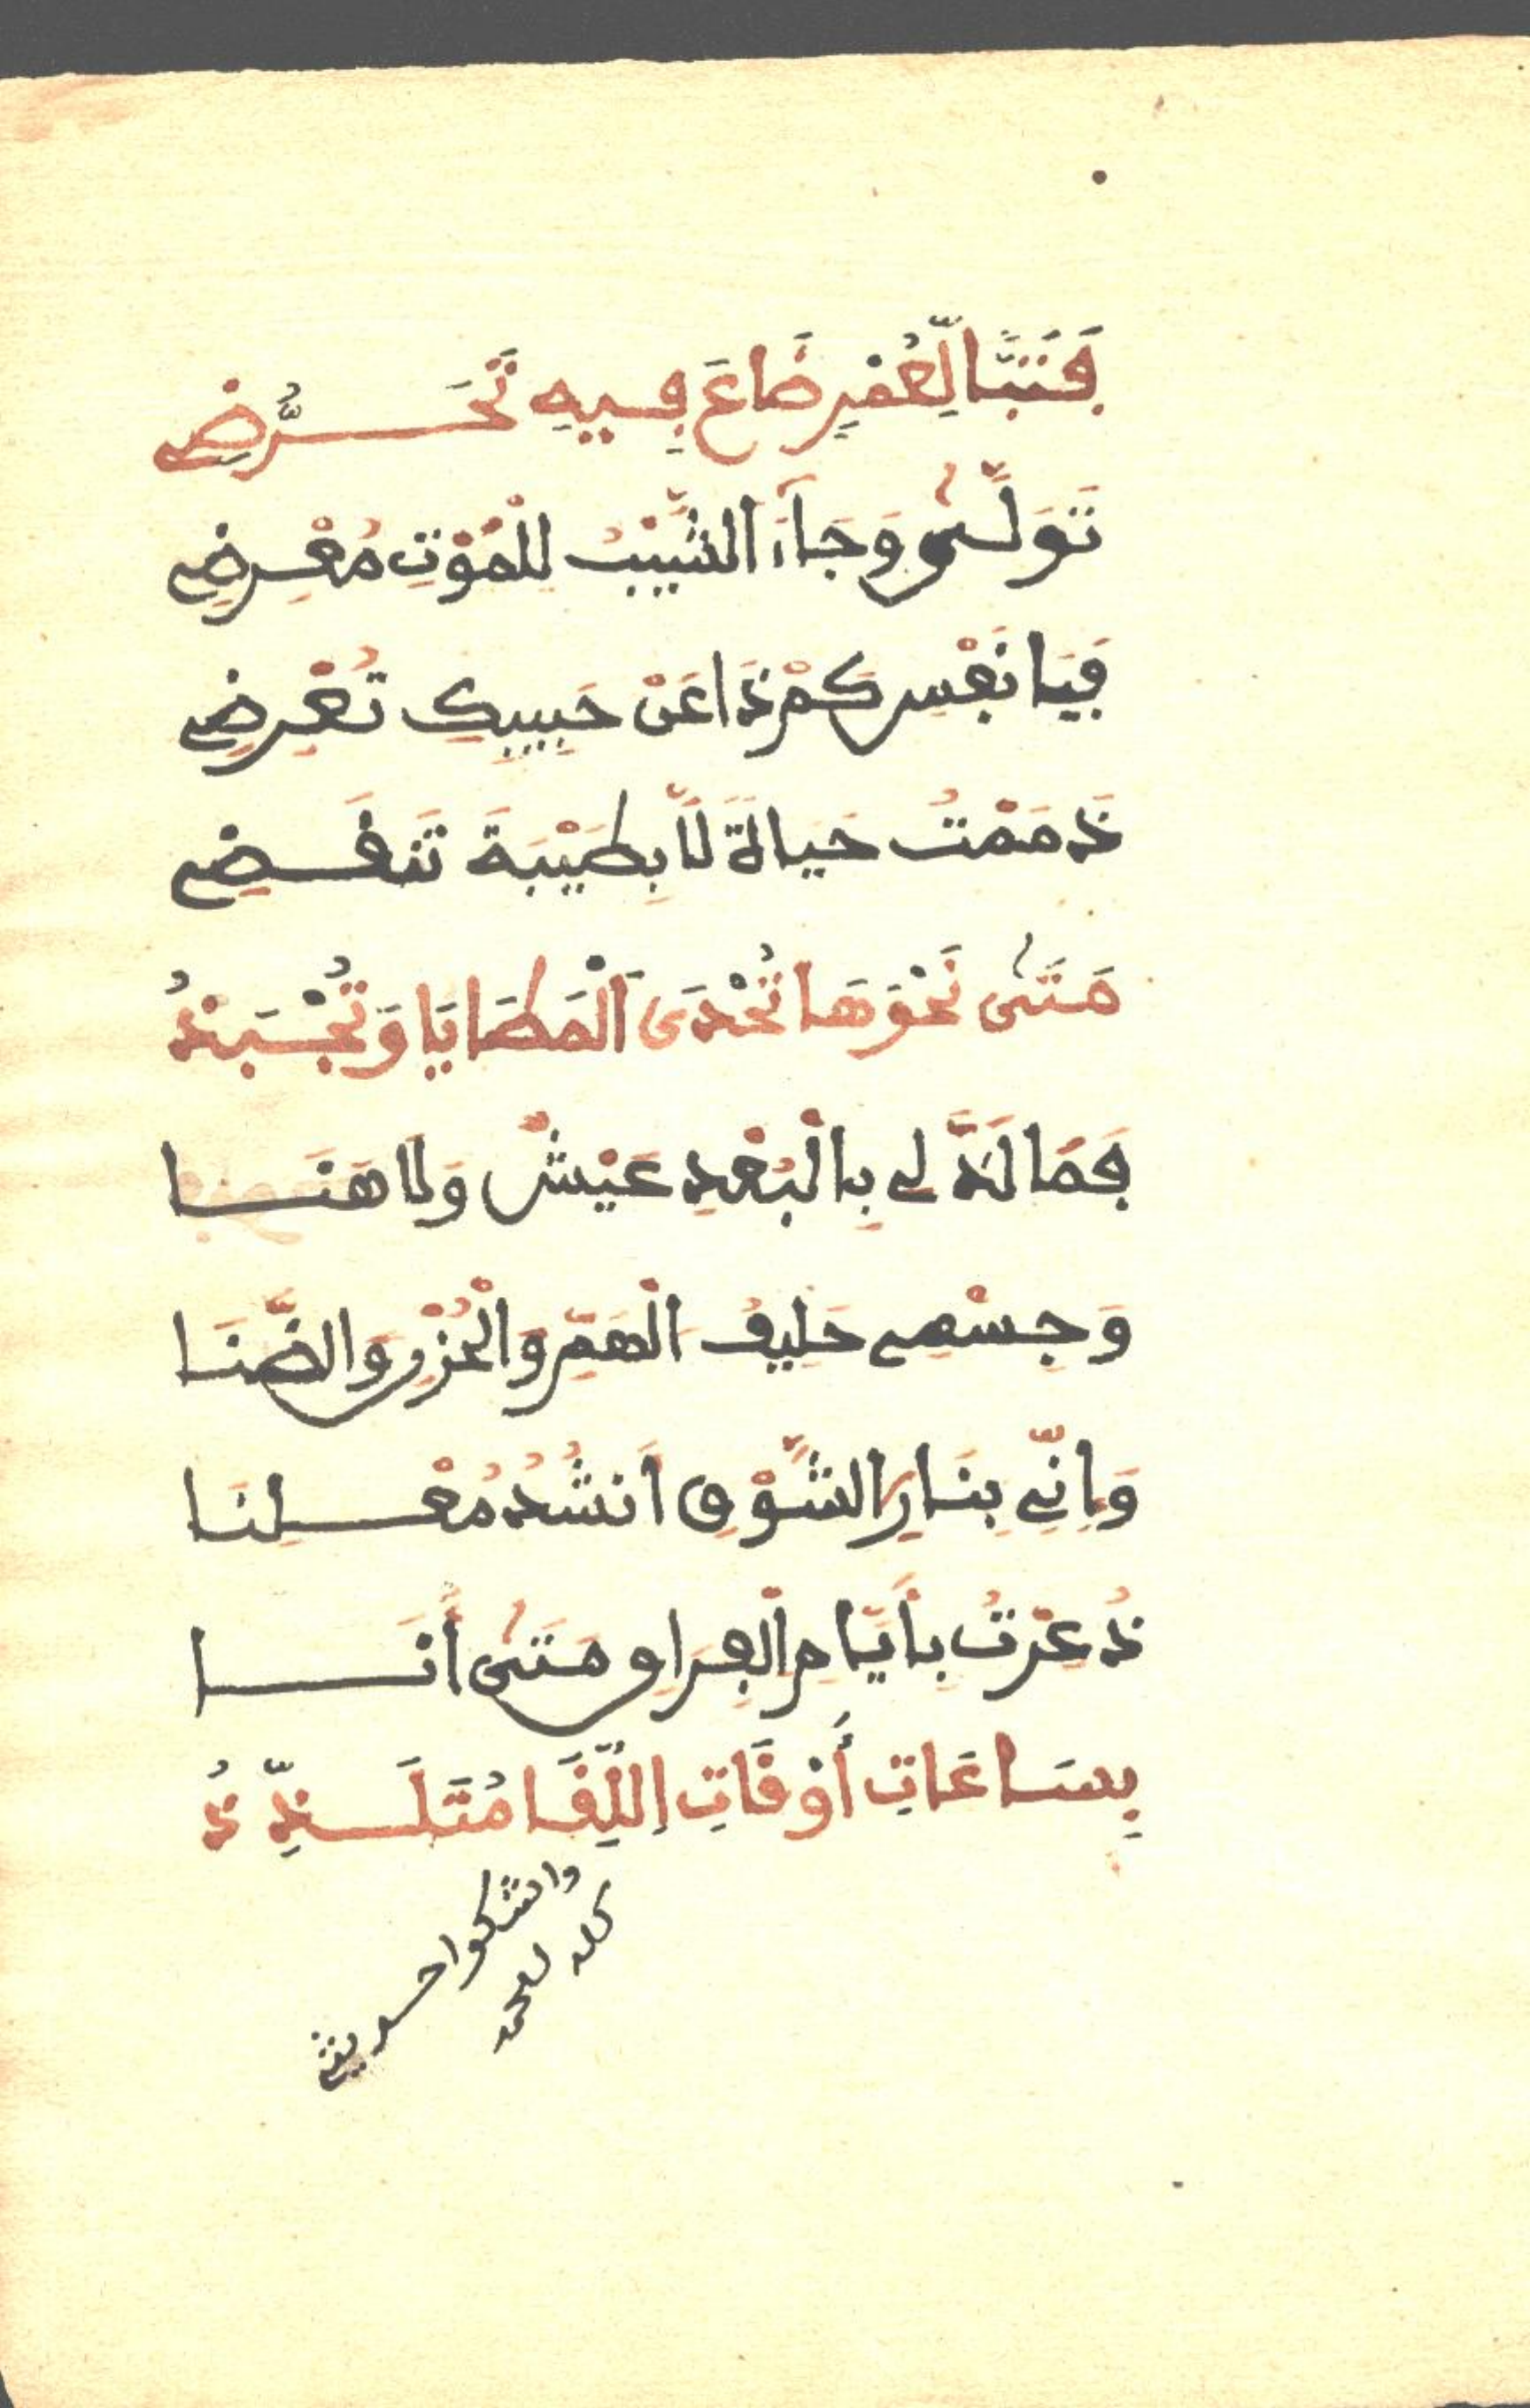 فَتَبًّا لِّعُمْرٍ ضَاعَ فِيهِ تَحَرُّضِ
تَوَلَّىٰ وَجَآءَ الشَّيْبُ لِلْمَوْتِ مُعْرِضِ
فَيَا نَفْسِ كَمْ ذَا عَنْ حَبِيبِكِ تُعْرِضِ
ذَمَمْتُ حَيَاةً لَّا بِطَيْبَةَ تَنقَضِ
مَتَىٰ نَحْوَهَا تُحْدَى ٱلْمَطَايَا وَتُجْبَذُ
فَمَا لَذَّ لِي بِالْبُعْدِ عَيْشٌ وَلَا هَنَا
وَجِسْمِي حَلِيفُ الْهَمِّ وَالْحُزْنِ وَالضَّنَا
وَإِنِّي بِنَارِ الشَّوْقِ أَنشُدُ مُعْلِنَا
ذُعِرْتُ بِأَيَّامِ الْفِرَاقِ مَتَىٰ أَنَا
بِسَاعَاتِ أَوْقَاتِ اللِّقَا مُتَلَذِّذُ